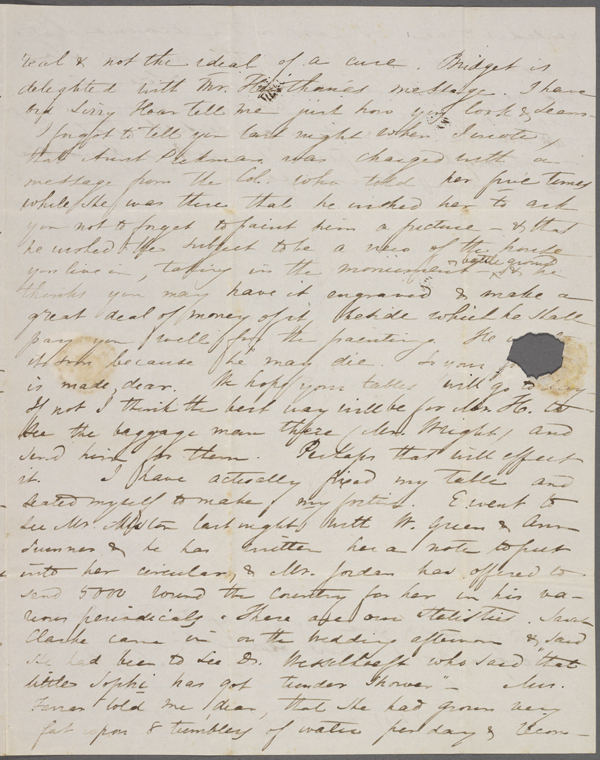 real & not the ideal of a cure. Bridget is
delighted with Mr. Hawthorne's message. I have
just how you look &
I forgot to tell you last night when I wrote,
that Aunt Pickman was charged with a
message from the Col. who told her five times
while she was there that he wished her to ask
you not to forget to paint him a picture — & that
he wished the subject to be a view of the house
you live in, taking in the monument & battle ground & he
thinks you may have it engraved & make a
great deal of money of it beside which he shall
pay you well for the painting. He
soon because he may die. So your
is made, dear. We hope your tables will go
If not I think the best way will be for Mr. H. to
see the baggage man there (Mr. Wright) and
send him for them. Perhaps that will effect
it. I have actually fixed my table and
seated myself to make my E. went to
see Mr. last night with W. Green & Ann
Sumner & he has written her a note to put
into her circular, & Mr. Jordan has offered to
send 5000 round the country for her in his va-
rious periodicals. These are our statistics. Sarah
Clarke came in on the wedding afternoon & said
she had been to see Dr. Wesselhoeft who said "that
little Sophie has got tunder shower" — Mrs.
told me, dear, that she had grown very
fat upon 8 tumblers of water per day &